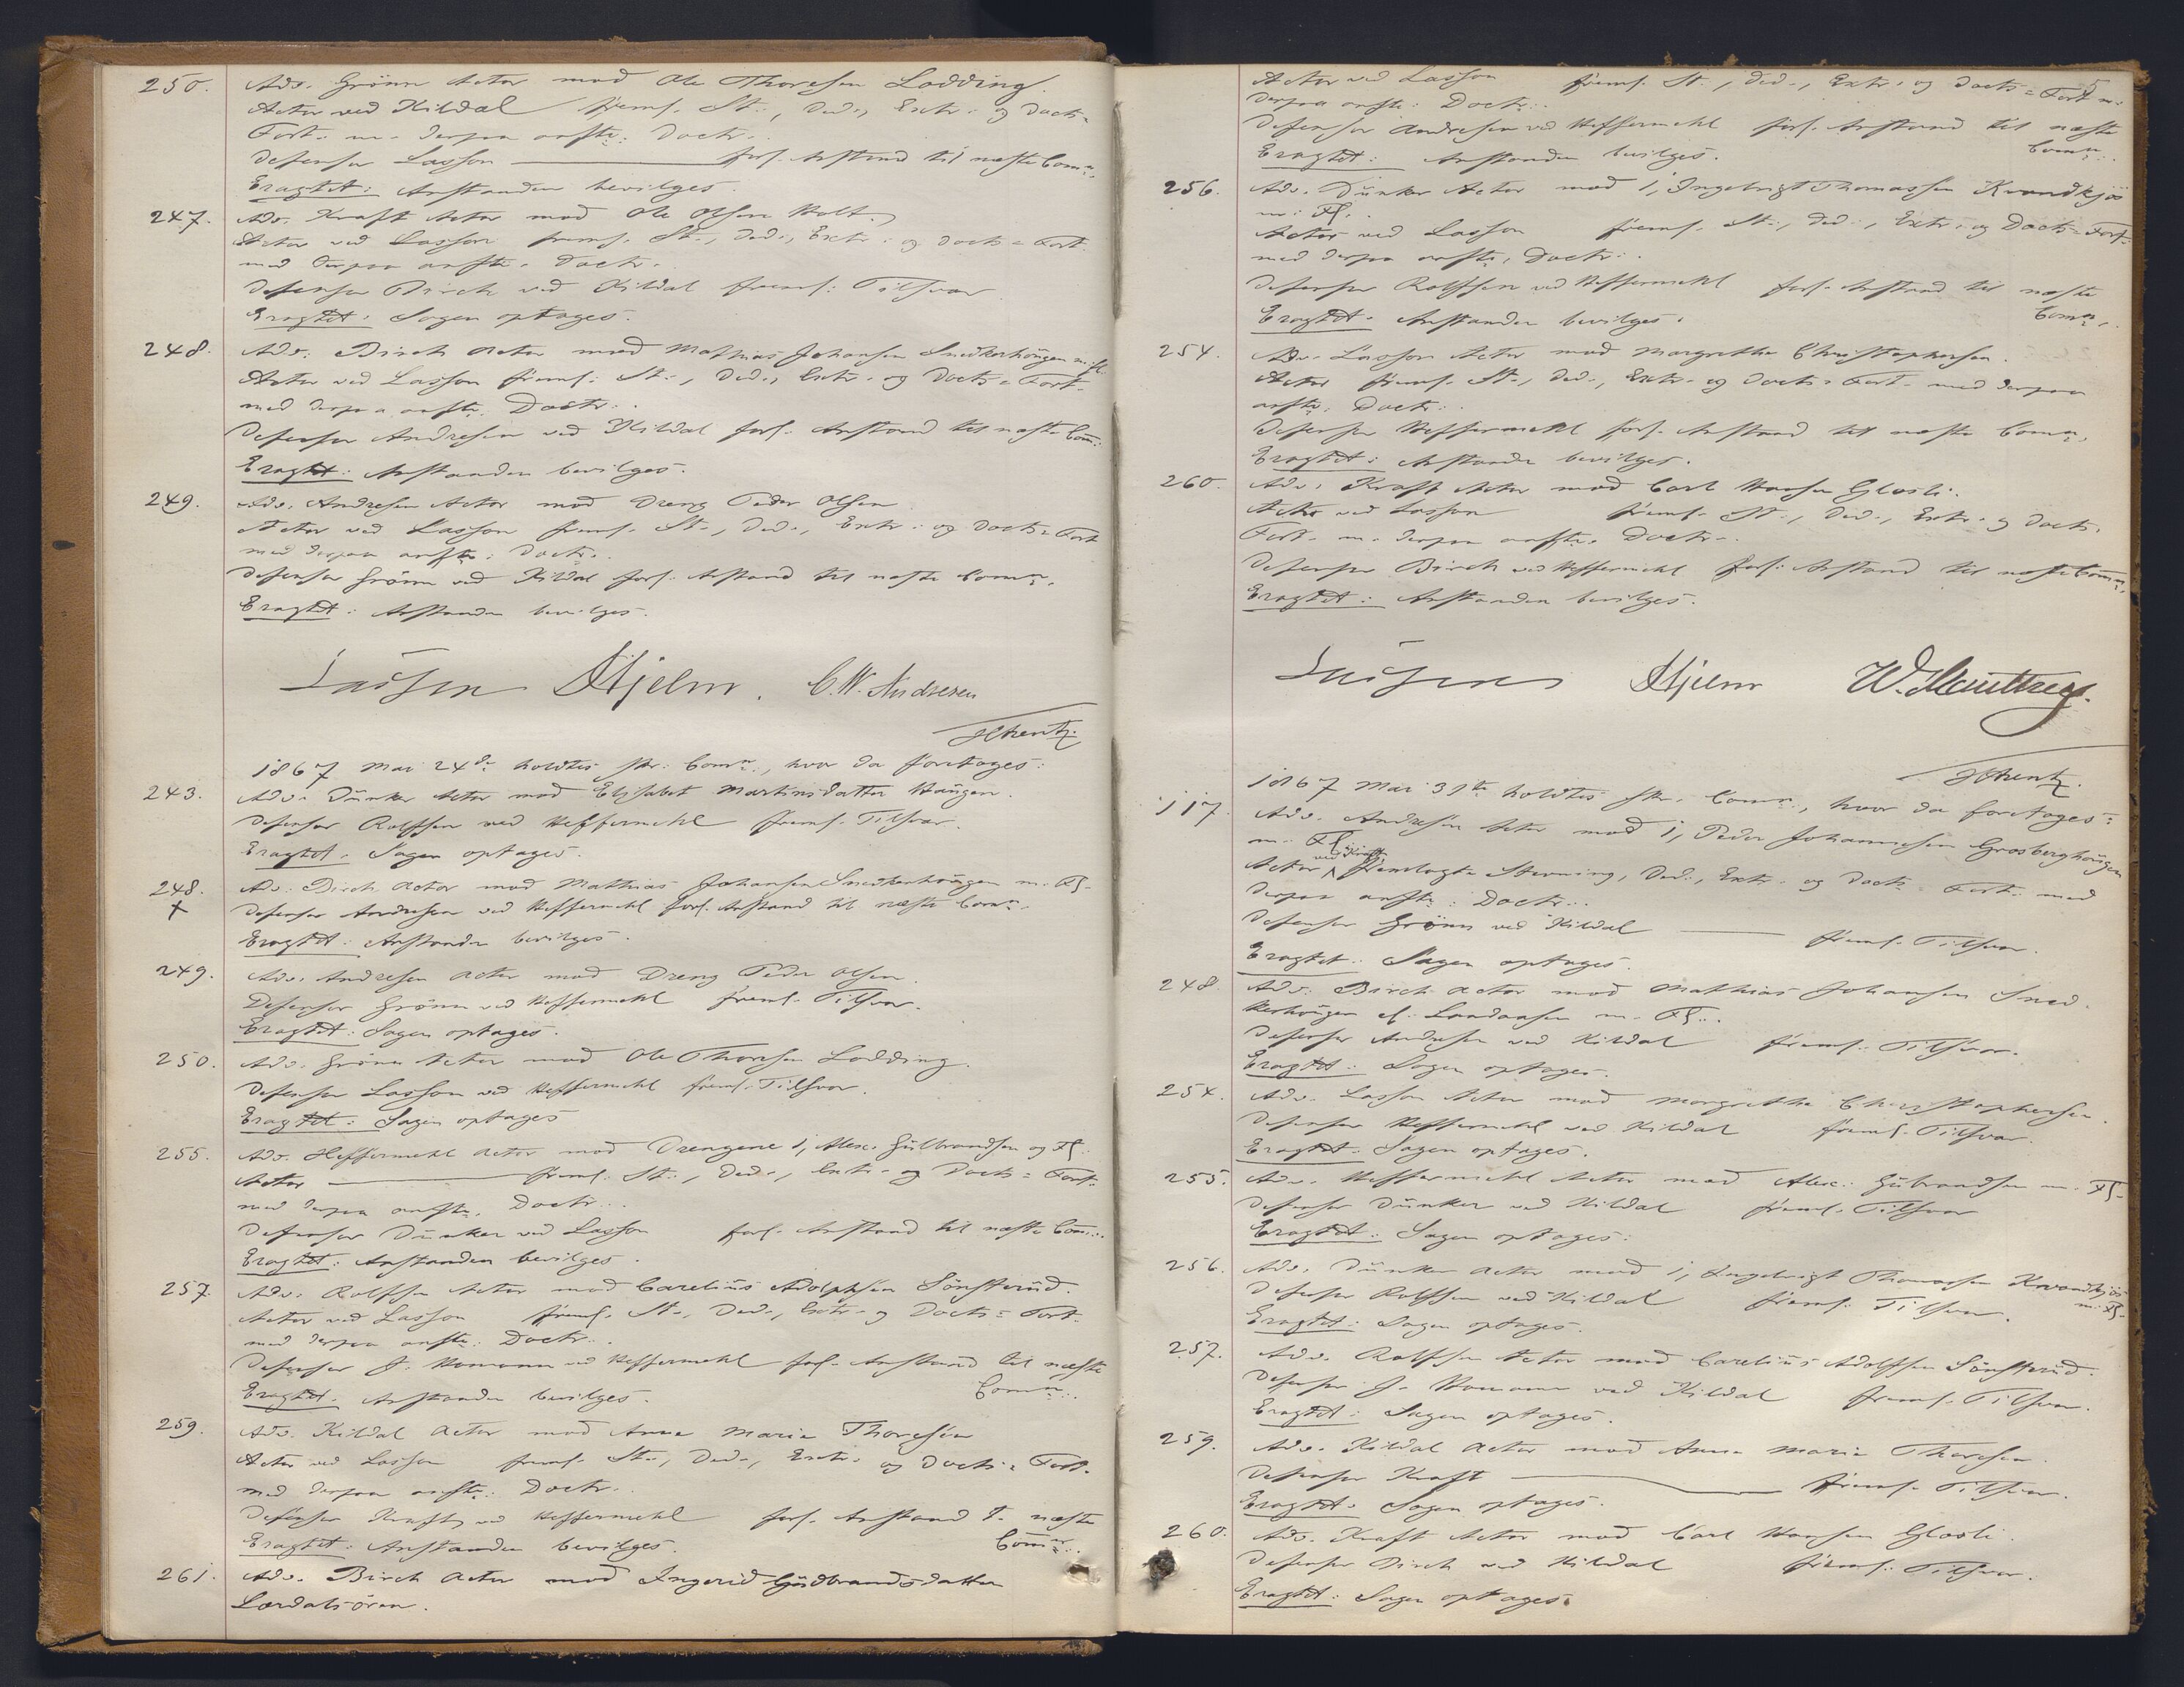 250. Adv. Grönn Actor mod Ole Thoresen Lodding.
Actor ved Kildal freml. St., Ded., Extr. og Docts=
Fort. m. derpaa anfte. Doctr.
Defensor Lasson ——— forl. Anstand til næste Comn.
Eragtet: Anstanden bevilges.
247. Adv. Kraft Actor mod Ole Olsen Holt.
Actor ved Lasson freml. St., Ded., Extr. og Docts= Fort.
med derpaa anfte. Doctr.
Defensor Birch ved Kildal freml. Tilsvar
Eragtet: Sagen optages.
248. Adv. Birch Actor mod Mathias Johansen Snedkerhaugen m. fl.
Actor ved Lasson freml. St., Ded., Extr. og Docts= Fort.
med derpaa anfte. Doctr.
Defensor Andresen ved Kildal forl. Anstand til næste Com:
Eragtet: Anstanden bevilges.
249. Adv. Andresen Actor mod Dreng Peder Olsen
Actor ved Lasson freml. St., Ded., Extr. og Docts= Fort
med derpaa anfte. Doctr.
Defensor Grönn ved Kildal forl. Anstand til næste Comn.
Eragtet: Anstanden bevilges.
Lassen Hjelm. C. W. Andresen
1867 Mai 24de holdtes Comn., hvor da foretoges:
243. Adv. Dunker Actor mod Elisabet Martinsdatter Haugen.
Defensor Rolfsen ved Heffermehl freml. Tilsvar.
Eragtet. Sagen optages.
248. Adv. Birch Actor mod Mathias Johansen Snedkerhaugen m. Fl.
+ Defensor Andresen ved Heffermehl forl. Anstand til næste Comn.
Eragtet: Anstanden bevilges.
249. Adv. Andresen Actor mod Dreng Peder Olsen
Defensor Grönn ved Heffermehl freml. Tilsvar.
Eragtet: Sagen optages.
250. Adv. Grönn Actor mod Ole Thoresen Lodding.
Defensor Lasson ved Heffermehl freml. Tilsvar.
Eragtet: Sagen optages
255. Adv. Heffermehl Actor mod Drengene 1, Alex. Gulbrandsen og Fl.
Actor ——— freml. St., Ded., Extr. og Docts= Fort.
med derpaa anfte. Doctr.
Defensor Dunker ved Lasson forl. Anstand til næste Com.
Eragtet: Anstanden bevilges.
257. Adv. Rolfsen Actor mod Carelius Adolphsen Sönsterud.
Actor ved Lasson freml. St., Ded., Extr. og Docts= Fort.
med derpaa anfte. Doctr.
Defensor J. Homann ved Heffermehl forl. Anstand til næste
Eragtet. Anstanden bevilges. Comn.
259. Adv. Kildal Actor mod Anne Marie Thoresen
Actor ved Lasson freml. St., Ded., Extr. og Docts= Fort.
med derpaa anfte. Doctr.
Defensor Kraft ved Heffermehl forl. Anstand t. næste
Eragtet: Anstanden bevilges. Comn.
261. Adv. Birch Actor mod Ingerid Gudbrandsdatter
Lærdalsören.
5
Actor ved Lasson freml. St., Ded., Extr. og Docts= Fort m.
derpaa anfte. Doctr.
Defensor Andresen ved Heffermehl forl. Anstand til næste
Eragtet: Anstanden bevilges. Comn.
256. Adv. Dunker Actor mod 1, Ingebrigt Thomassen Kvandkjös
m. Fl.
Actor ved Lasson freml. St., Ded., Extr. og Docts= Fort.
med derpaa anfte. Doctr.
Defensor Rolfsen ved Heffermehl forl. Anstand til næste
Eragtet. Anstanden bevilges. Comn.
254. Adv. Lasson Actor mod Margrethe Christophersen.
Actor freml. St., Ded., Extr. og Docts= Fort. med derpaa
anfte. Doctr.
Defensor Heffermehl forl. Anstand til næste Comn.
Eragtet: Anstanden bevilges.
260. Adv. Kraft Actor mod Carl Hansen Glosli.
Actor ved Lasson freml. St., Ded., Extr. og Docts=
Fort. m. derpaa anfte. Doctr.
Defensor Birch ved Heffermehl forl. Anstand til næste Comn.
Eragtet: Anstanden bevilges.
Lassen Hjelm
1867 Mai 31te holdtes Comn., hvor da foretoges:
117. Adv. Andresen Actor mod 1, Peder Johannesen Grosberghaugen
m. Fl.
Actor ved Kraft fremlagte Stevning, Ded., Extr. og Docts= Fort. med
derpaa anfte. Doctr.
Defensor Grönn ved Kildal ——— freml. Tilsvar.
Eragtet: Sagen optages.
248. Adv. Birch Actor mod Mathias Johansen Sned-
kerhaugen el. Landaasen m. Fl.
Defensor Andresen ved Kildal freml. Tilsvar.
Eragtet: Sagen optages.
254. Adv. Lasson Actor mod Margrethe Christophersen.
Defensor Heffermehl ved Kildal freml. Tilsvar.
Eragtet: Sagen optages.
255. Adv. Heffermehl Actor mod Alex. Gulbrandsen m. Fl.
Defensor Dunker ved Kildal freml. Tilsvar
Eragtet: Sagen optages.
256. Adv. Dunker Actor mod 1, Ingebrigt Thomassen Kvandkjös
m. Fl.
Defensor Rolfsen ved Kildal freml. Tilsvar.
Eragtet: Sagen optages.
257. Adv. Rolfsen Actor mod Carelius Adolfsen Sönsterud.
Defensor J. Homann ved Kildal freml. Tilsvar.
Eragtet: Sagen optages.
259. Adv. Kildal Actor mod Anne Marie Thoresen.
Defensor Kraft ——— freml. Tilsvar.
Eragtet. Sagen optages.
260. Adv. Kraft Actor mod Carl Hansen Glosli.
Defensor Birch ved Kildal freml. Tilsvar.
Eragtet: Sagen optages.